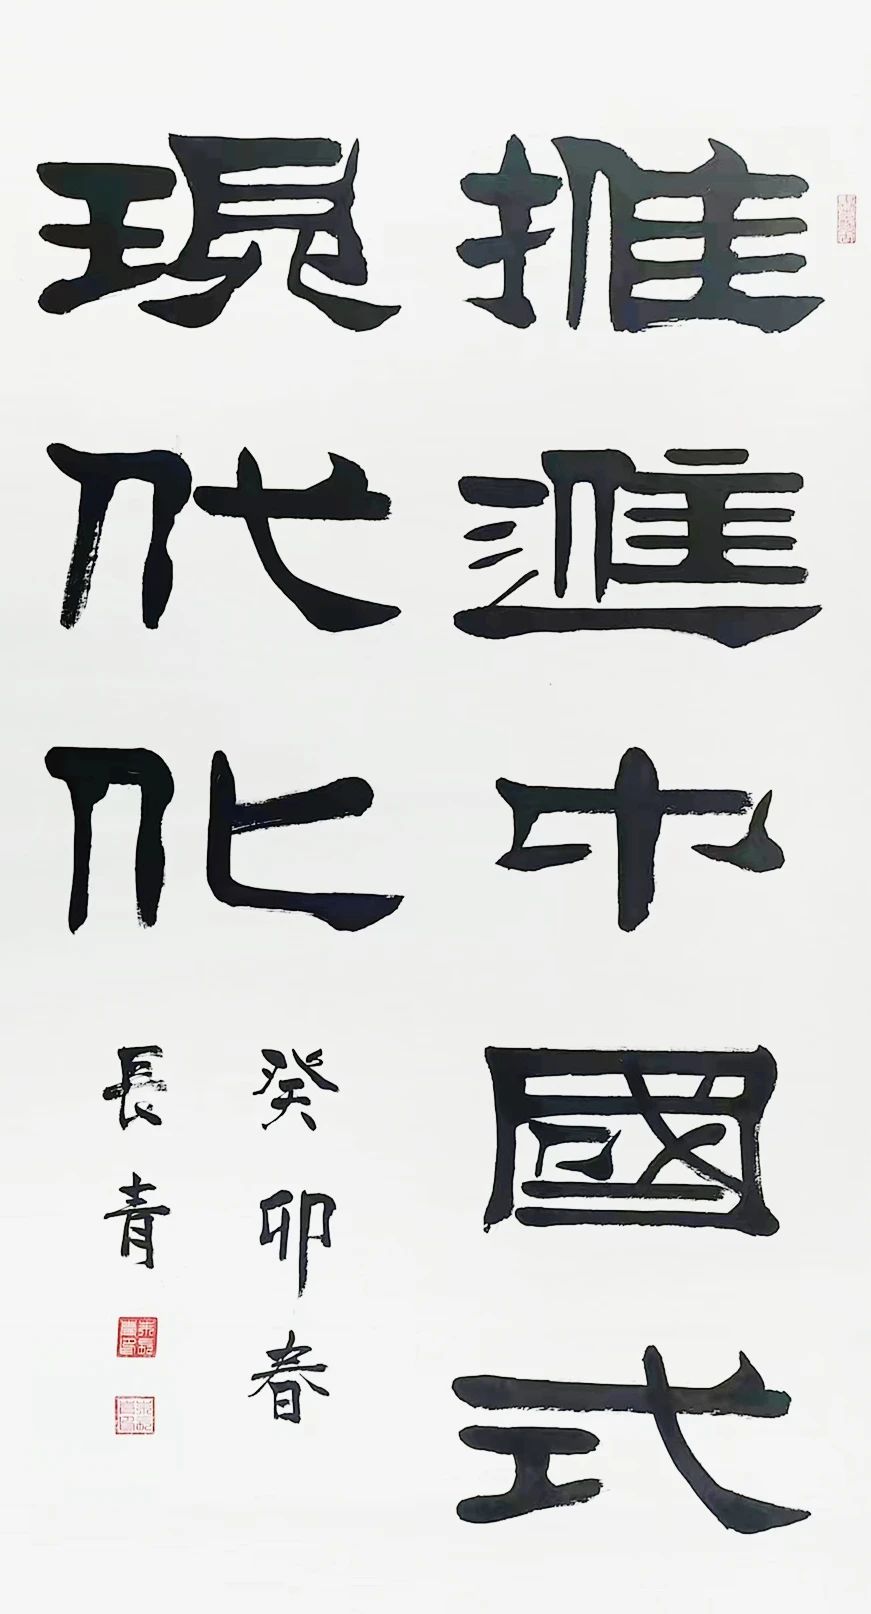 推進中國式
現代化
癸卯春
長青